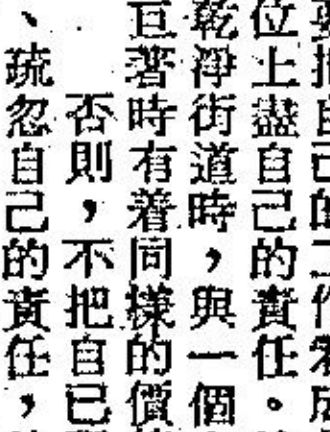 位上盡自己的責任。
乾淨街道時，與一個
巨著時有着同樣的價
否則，不把自己
、疏忽自己的責任，